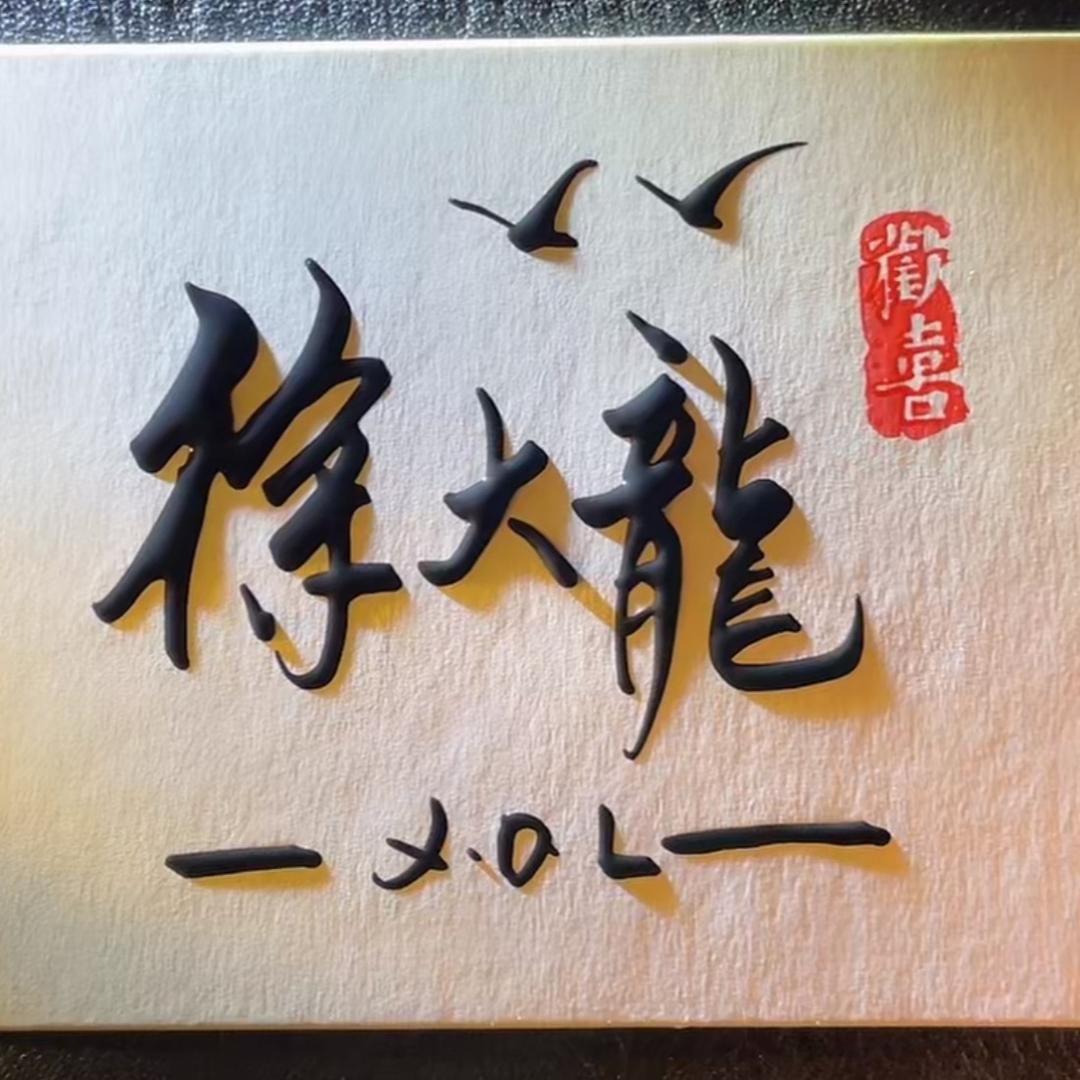 徐大龍
X.D L
歡喜